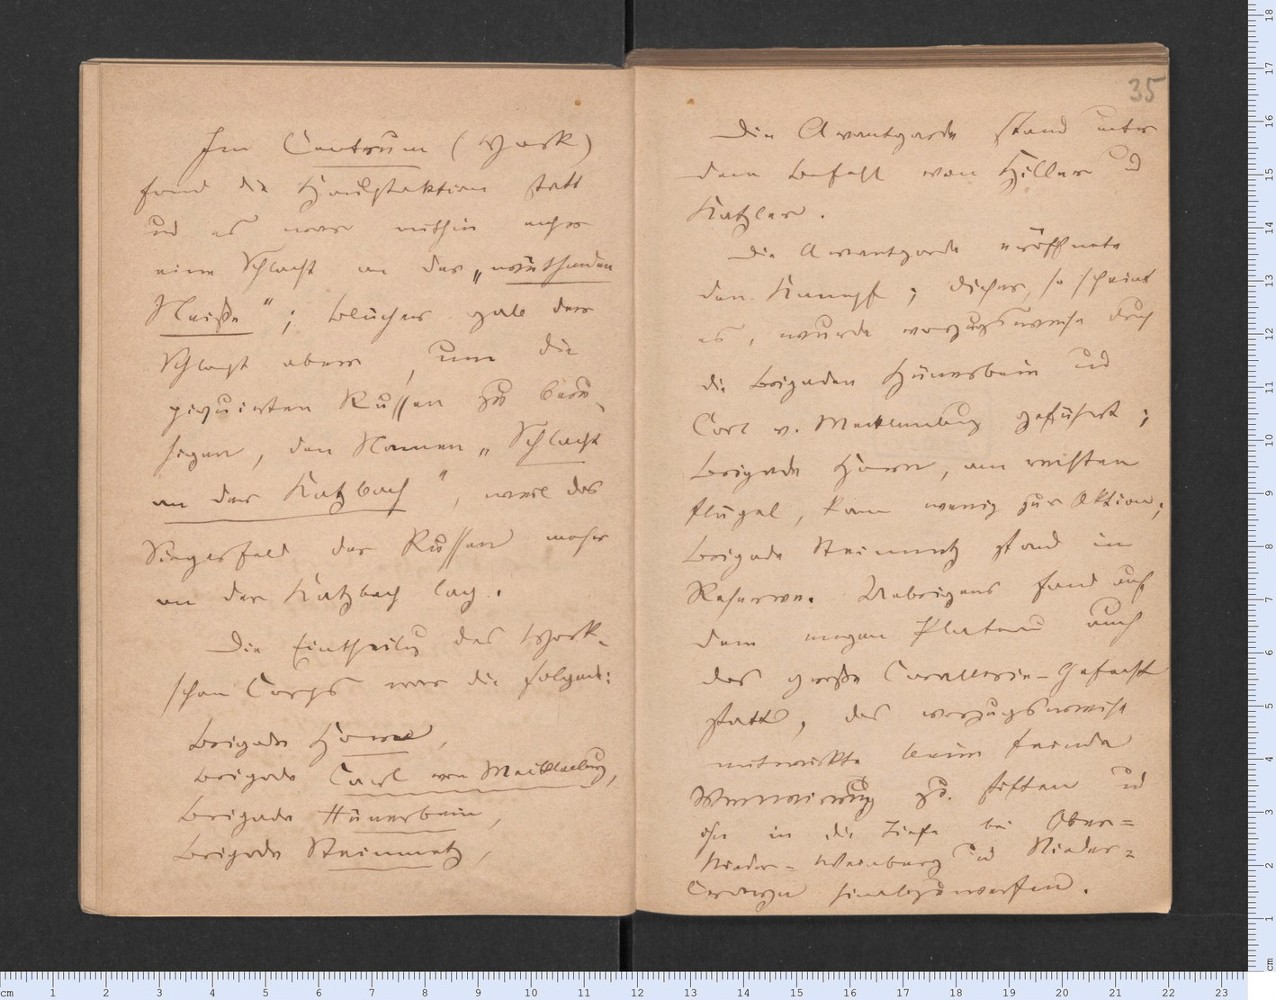 Im Centrum (York)
fand die Hauptaktion statt
und es war mithin mehr
eine Schlacht an der „wüthenden
Neiße“; Blücher gab der
Schlacht aber, um die
piquirten Russen zu beru-
higen, den Namen „Schlacht
an der Katzbach“, weil das
Siegesfeld der Russen mehr
an der Katzbach lag.
Die Eintheilung des York-
schen Corps war die folgende:
Brigade Horn,
Brigade Carl von Mecklenburg,
Brigade Hünerbein,
Brigade Steinmetz,
35
Die Avantgarde stand unter
dem Befehl von Hiller und
Katzler.
Die Avantgarde eröffnete
den Kampf; dieser, so scheint
es, wurde vorzugsweise durch
die Brigaden Hünerbein und
Carl v. Mecklenburg geführt;
Brigade Horn, am rechten
Flügel, kam wenig zur Aktion;
Brigade Steinmetz stand in
Reserve. Uebrigens fand auf
dem Plateau auch
das große Cavallerie-Gefecht
statt, das vorzugsweise
mitwirkte beim Feinde
Verwirrung zu stiften und
ihn in die Tiefe bei Ober-
Nieder-Weinberg und Nieder-
Crayn hinabzuwerfen.